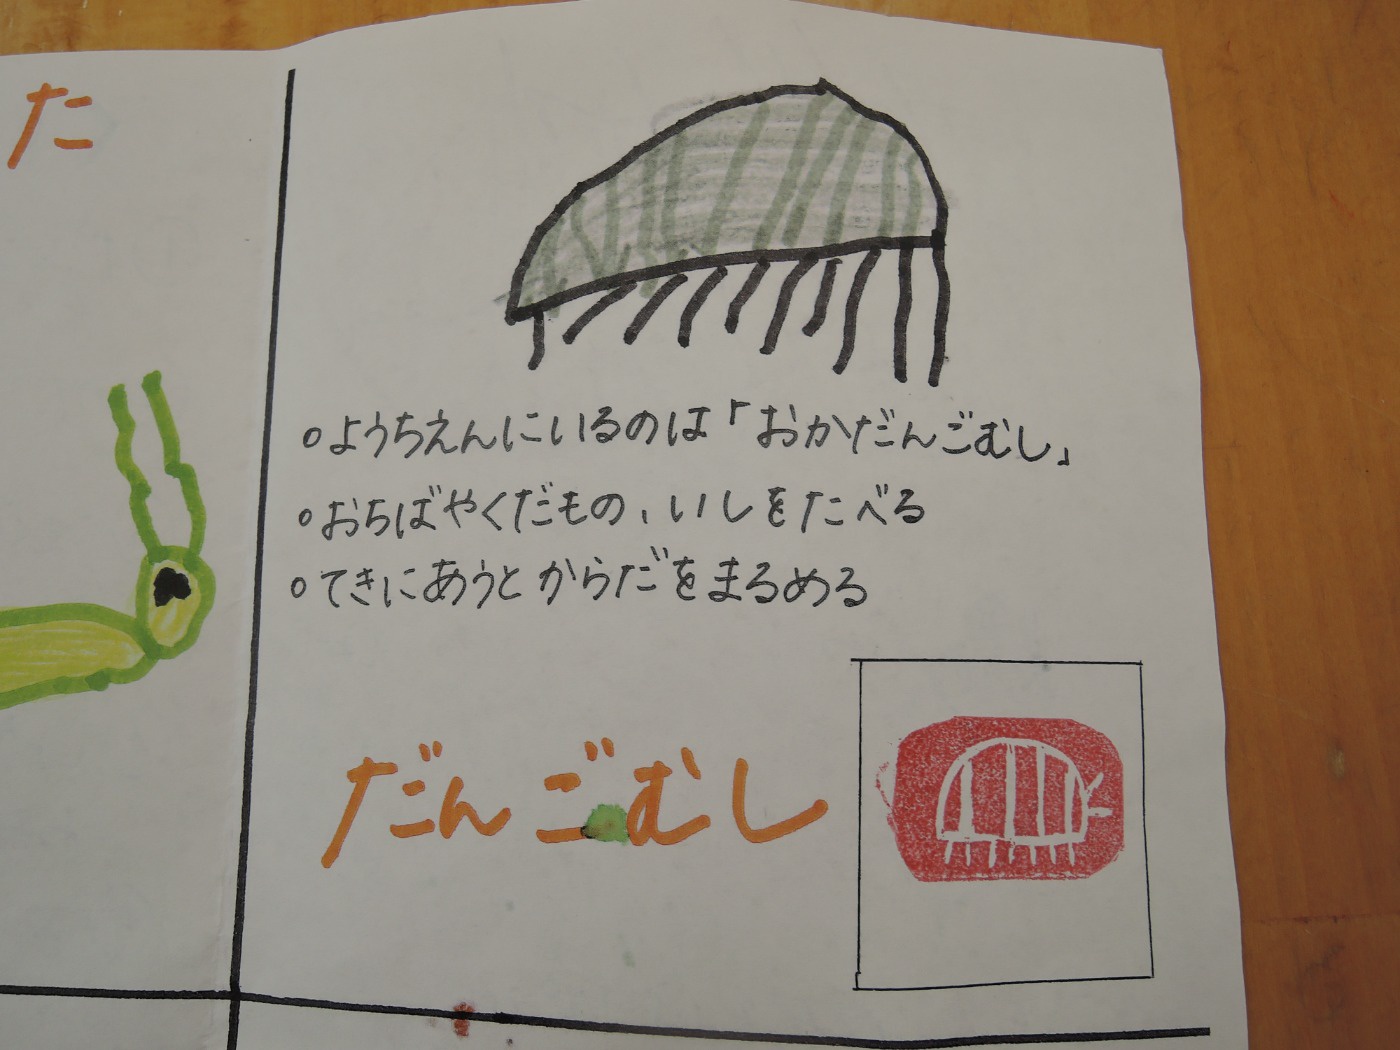 た
。ようちえんにいるのは「おかだんごむし」
。おちばやくだもの、いしをたべる
。てきにあうとからだをまるめる
だんごむし